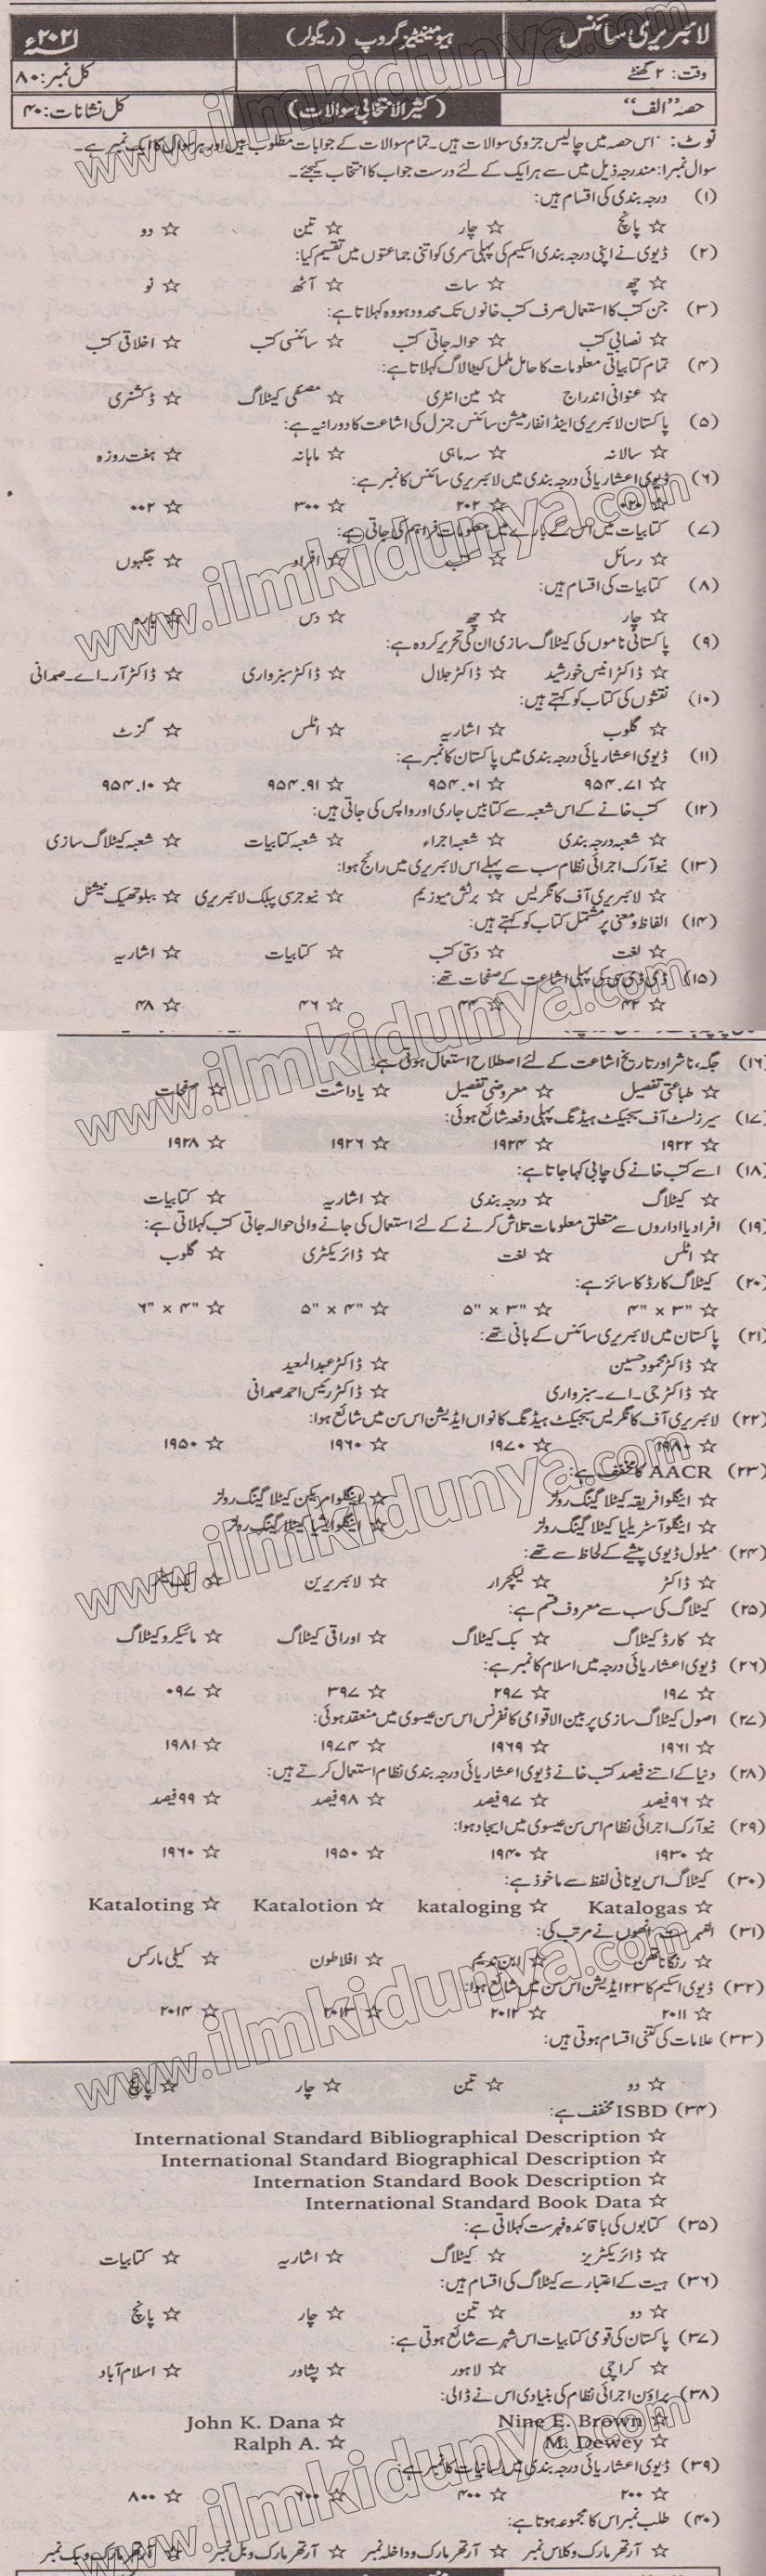 لائبریری سائنس ہیومینیٹیز گروپ (ریگولر) ۲۰۲۱ء
وقت: ۲ گھنٹے کل نمبر: ۸۰
حصہ "الف" (کثیر الانتخابی سوالات) کل نشانات: ۴۰
نوٹ: اس حصہ میں چالیس جزوی سوالات ہیں۔ تمام سوالات کے جوابات مطلوب ہیں اور ہر سوال کا ایک نمبر ہے۔
سوال نمبر۱: مندرجہ ذیل میں سے ہر ایک کے لئے درست جواب کا انتخاب کیجئے۔
(۱) درجہ بندی کی اقسام ہیں:
☆ پانچ ☆ چار ☆ تین ☆ دو
(۲) ڈیوی نے اپنی درجہ بندی اسکیم کی پہلی سمری کو اتنی جماعتوں میں تقسیم کیا:
☆ چھ ☆ سات ☆ آٹھ ☆ نو
(۳) جن کتب کا استعمال صرف کتب خانوں تک محدود ہو وہ کہلاتا ہے:
☆ نصابی کتب ☆ حوالہ جاتی کتب ☆ سائنسی کتب ☆ اخلاقی کتب
(۴) تمام کتابیاتی معلومات کا حامل مکمل کیٹالاگ کہلاتا ہے:
☆ عنوانی اندراج ☆ مین انٹری ☆ مصنفی کیٹلاگ ☆ ڈکشنری
(۵) پاکستان لائبریری اینڈ انفارمیشن سائنس جنرل کی اشاعت کا دورانیہ ہے:
☆ سالانہ ☆ سہ ماہی ☆ ماہانہ ☆ ہفت روزہ
(۶) ڈیوی اعشاریائی درجہ بندی میں لائبریری سائنس کا نمبر ہے:
☆ ۰۲۰ ☆ ۲۰۲ ☆ ۳۰۰ ☆ ۰۰۲
(۷) کتابیات میں اس کے بارے میں معلومات فراہم کی جاتی ہے:
☆ رسائل ☆ کتب ☆ افراد ☆ جگہوں
(۸) کتابیات کی اقسام ہیں:
☆ چار ☆ چھ ☆ دس ☆ بارہ
(۹) پاکستانی ناموں کی کیٹلاگ سازی ان کی تحریر کردہ ہے:
☆ ڈاکٹر انیس خورشید ☆ ڈاکٹر جلال ☆ ڈاکٹر سبزواری ☆ ڈاکٹر آر۔اے۔صمدانی
(۱۰) نقشوں کی کتاب کو کہتے ہیں:
☆ گلوب ☆ اشاریہ ☆ اٹلس ☆ گزٹ
(۱۱) ڈیوی اعشاریائی درجہ بندی میں پاکستان کا نمبر ہے:
☆ ۹۵۴.۷۱ ☆ ۹۵۴.۰۱ ☆ ۹۵۴.۹۱ ☆ ۹۵۴.۱۰
(۱۲) کتب خانے کے اس شعبہ سے کتابیں جاری اور واپس کی جاتی ہیں:
☆ شعبہ درجہ بندی ☆ شعبہ اجراء ☆ شعبہ کتابیات ☆ شعبہ کیٹلاگ سازی
(۱۳) نیو آرک اجرائی نظام سب سے پہلے اس لائبریری میں رائج ہوا:
☆ لائبریری آف کانگریس ☆ برٹش میوزیم ☆ نیو جرسی پبلک لائبریری ☆ ببلو تھیک نیشنل
(۱۴) الفاظ و معنی پر مشتمل کتاب کو کہتے ہیں:
☆ لغت ☆ دستی کتب ☆ کتابیات ☆ اشاریہ
(۱۵) ڈی ڈی سی کی پہلی اشاعت کے صفحات تھے:
☆ ۴۲ ☆ ۴۴ ☆ ۴۶ ☆ ۴۸
(۱۶) جگہ، ناشر اور تاریخ اشاعت کے لئے اصطلاح استعمال ہوتی ہے:
☆ طباعتی تفصیل ☆ معروضی تفصیل ☆ یادداشت ☆ صفحات
(۱۷) سیرز لسٹ آف سبجیکٹ ہیڈنگ پہلی دفعہ شائع ہوئی:
☆ ۱۹۲۲ ☆ ۱۹۲۴ ☆ ۱۹۲۶ ☆ ۱۹۲۸
(۱۸) اسے کتب خانے کی چابی کہا جاتا ہے:
☆ کیٹلاگ ☆ درجہ بندی ☆ اشاریہ ☆ کتابیات
(۱۹) افراد یا اداروں سے متعلق معلومات تلاش کرنے کے لئے استعمال کی جانے والی حوالہ جاتی کتب کہلاتی ہے:
☆ اٹلس ☆ لغت ☆ ڈائریکٹری ☆ گلوب
(۲۰) کیٹلاگ کارڈ کا سائز ہے:
☆ ۳" × ۴" ☆ ۳" × ۵" ☆ ۴" × ۵" ☆ ۴" × ۶"
(۲۱) پاکستان میں لائبریری سائنس کے بانی تھے:
☆ ڈاکٹر محمود حسین ☆ ڈاکٹر عبدالمعید
☆ ڈاکٹر جی۔اے۔سبزواری ☆ ڈاکٹر رئیس احمد صمدانی
(۲۲) لائبریری آف کانگریس سبجیکٹ ہیڈنگ کا نواں ایڈیشن اس سن میں شائع ہوا:
☆ ۱۹۸۰ ☆ ۱۹۷۰ ☆ ۱۹۶۰ ☆ ۱۹۵۰
(۲۳) AACR کا مخفف ہے:
☆ اینگلو افریقہ کیٹلاگینگ رولز ☆ اینگلو امریکن کیٹلاگینگ رولز
☆ اینگلو آسٹریلیا کیٹلاگینگ رولز ☆ اینگلو ایشیا کیٹلاگینگ رولز
(۲۴) میلول ڈیوی پیشے کے لحاظ سے تھے:
☆ ڈاکٹر ☆ لیکچرار ☆ لائبریرین
(۲۵) کیٹلاگ کی سب سے معروف قسم ہے:
☆ کارڈ کیٹلاگ ☆ بک کیٹلاگ ☆ اوراقی کیٹلاگ ☆ مائیکرو کیٹلاگ
(۲۶) ڈیوی اعشاریائی درجہ میں اسلام کا نمبر ہے:
☆ ۱۹۷ ☆ ۲۹۷ ☆ ۳۹۷ ☆ ۰۹۷
(۲۷) اصول کیٹلاگ سازی پر بین الاقوامی کانفرنس اس سن عیسوی میں منعقد ہوئی:
☆ ۱۹۶۱ ☆ ۱۹۶۹ ☆ ۱۹۷۴ ☆ ۱۹۸۱
(۲۸) دنیا کے اتنے فیصد کتب خانے ڈیوی اعشاریائی درجہ بندی نظام استعمال کرتے ہیں:
☆ ۹۶ فیصد ☆ ۹۷ فیصد ☆ ۹۸ فیصد ☆ ۹۹ فیصد
(۲۹) نیو آرک اجرائی نظام اس سن عیسوی میں ایجاد ہوا:
☆ ۱۹۳۰ ☆ ۱۹۴۰ ☆ ۱۹۵۰ ☆ ۱۹۶۰
(۳۰) کیٹلاگ اس یونانی لفظ سے ماخوذ ہے:
☆ Katalogas ☆ kataloging ☆ Katalotion ☆ Kataloting
(۳۱) الفہرست انھوں نے مرتب کی:
☆ رنگاناتھن ☆ ابن ندیم ☆ افلاطون ☆ کیلی مارکس
(۳۲) ڈیوی اسکیم کا ۲۳ ایڈیشن اس سن میں شائع ہوا:
☆ ۲۰۱۱ ☆ ۲۰۱۲ ☆ ۲۰۱۳ ☆ ۲۰۱۴
(۳۳) علامات کی کتنی اقسام ہوتی ہیں:
☆ دو ☆ تین ☆ چار ☆ پانچ
(۳۴) ISBD مخفف ہے:
☆ International Standard Bibliographical Description
☆ International Standard Biographical Description
☆ Internation Standard Book Description
☆ International Standard Book Data
(۳۵) کتابوں کی باقاعدہ فہرست کہلاتی ہے:
☆ ڈائریکٹریز ☆ کیٹلاگ ☆ اشاریہ ☆ کتابیات
(۳۶) ہیت کے اعتبار سے کیٹلاگ کی اقسام ہیں:
☆ دو ☆ تین ☆ چار ☆ پانچ
(۳۷) پاکستان کی قومی کتابیات اس شہر سے شائع ہوتی ہے:
☆ کراچی ☆ لاہور ☆ پشاور ☆ اسلام آباد
(۳۸) براؤن اجرائی نظام کی بنیادی اس نے ڈالی:
☆ Nine E. Brown ☆ John K. Dana
☆ M. Dewey ☆ Ralph A.
(۳۹) ڈیوی اعشاریائی درجہ بندی میں لسانیات کا نمبر ہے:
☆ ۲۰۰ ☆ ۴۰۰ ☆ ۶۰۰ ☆ ۸۰۰
(۴۰) طلب نمبر اس کا مجموعہ ہوتا ہے:
☆ آرتھر مارک و کلاس نمبر ☆ آرتھر مارک و داخلہ نمبر ☆ آرتھر مارک و بل نمبر ☆ آرتھر مارک و بک نمبر
www.ilmkidunya.com
www.ilmkidunya.com
www.ilmkidunya.com
www.ilmkidunya.com
www.ilmkidunya.com
www.ilmkidunya.com